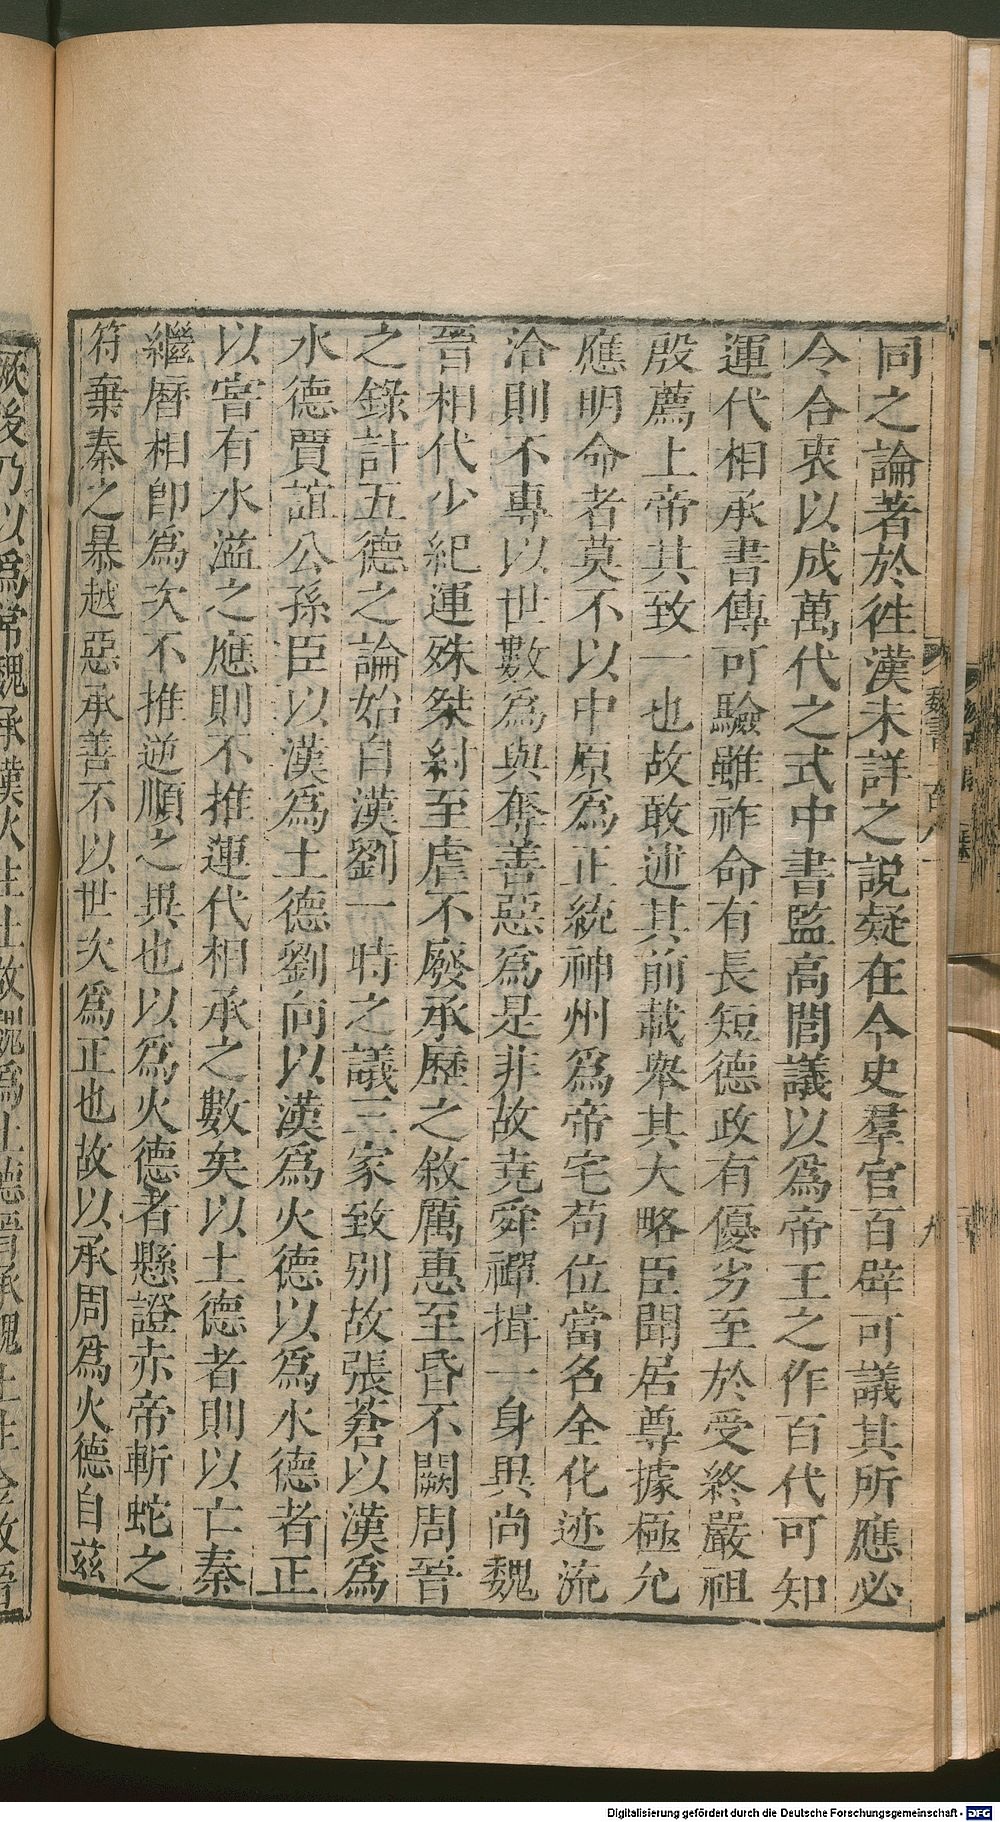 同之論著於徃漢未詳之說疑在今史羣官百辟可議其所應必
令合衷以成萬代之式中書監高閭議以爲帝王之作百代可知
運代相承書傳可驗雖祚命有長短德政有優劣至於受終嚴祖
殷薦上帝其致一也故敢述其前載舉其大略臣聞居尊據極允
應明命者莫不以中原爲正統神州爲帝宅苟位當名全化迹流
洽則不專以世數爲與奪善惡爲是非故堯舜禪揖一身異尚魏
晉相代少紀運殊桀紂至虐不廢承歷之敘厲惠至昏不闕周晉
之錄計五德之論始自漢劉一時之議三家致别故張蒼以漢爲
水德賈誼公孫臣以漢爲土德劉向以漢爲火德以爲水德者正
以嘗有水溢之應則不推運代相承之數矣以土德者則以亡秦
繼曆相即爲次不推逆順之異也以爲火德者懸證赤帝斬蛇之
符棄秦之暴越惡承善不以世次爲正也故以承周爲火德自茲
厥後乃以爲常魏承漢火生土故魏爲土德晉承魏土生金故晉
魏書一百八
九
Digitalisierung gefördert durch die Deutsche Forschungsgemeinschaft - DFG